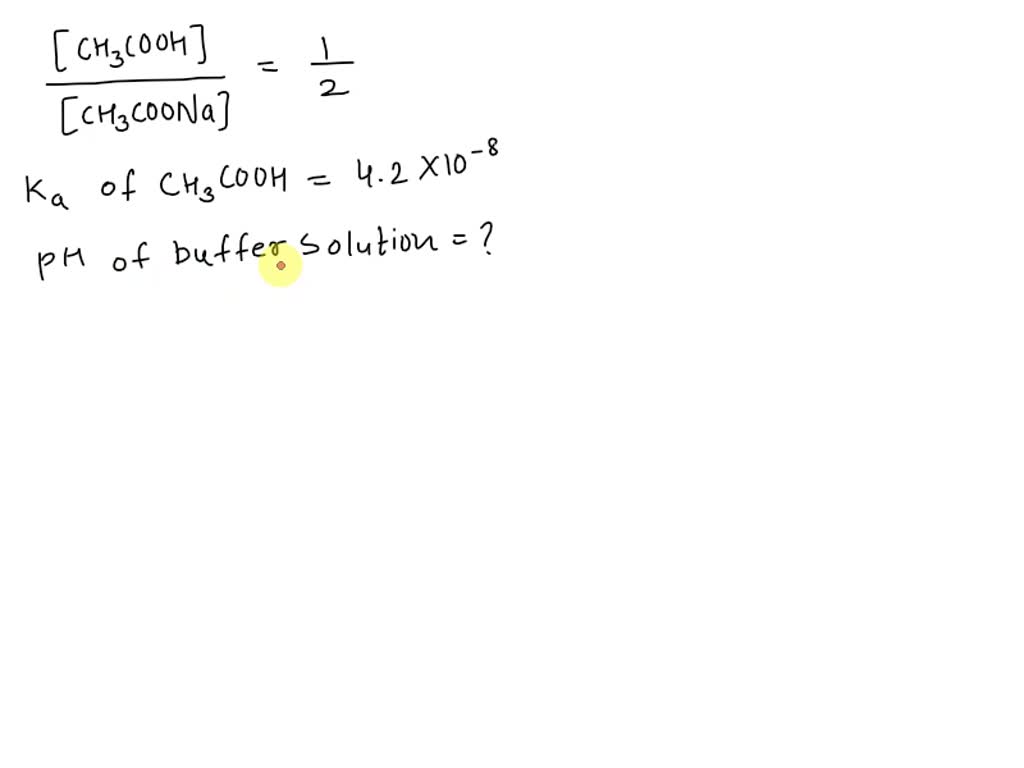 [CH₃COOH] / [CH₃COONa] = 1/2
Ka of CH₃COOH = 4.2 X10⁻⁸
pH of buffer solution = ?